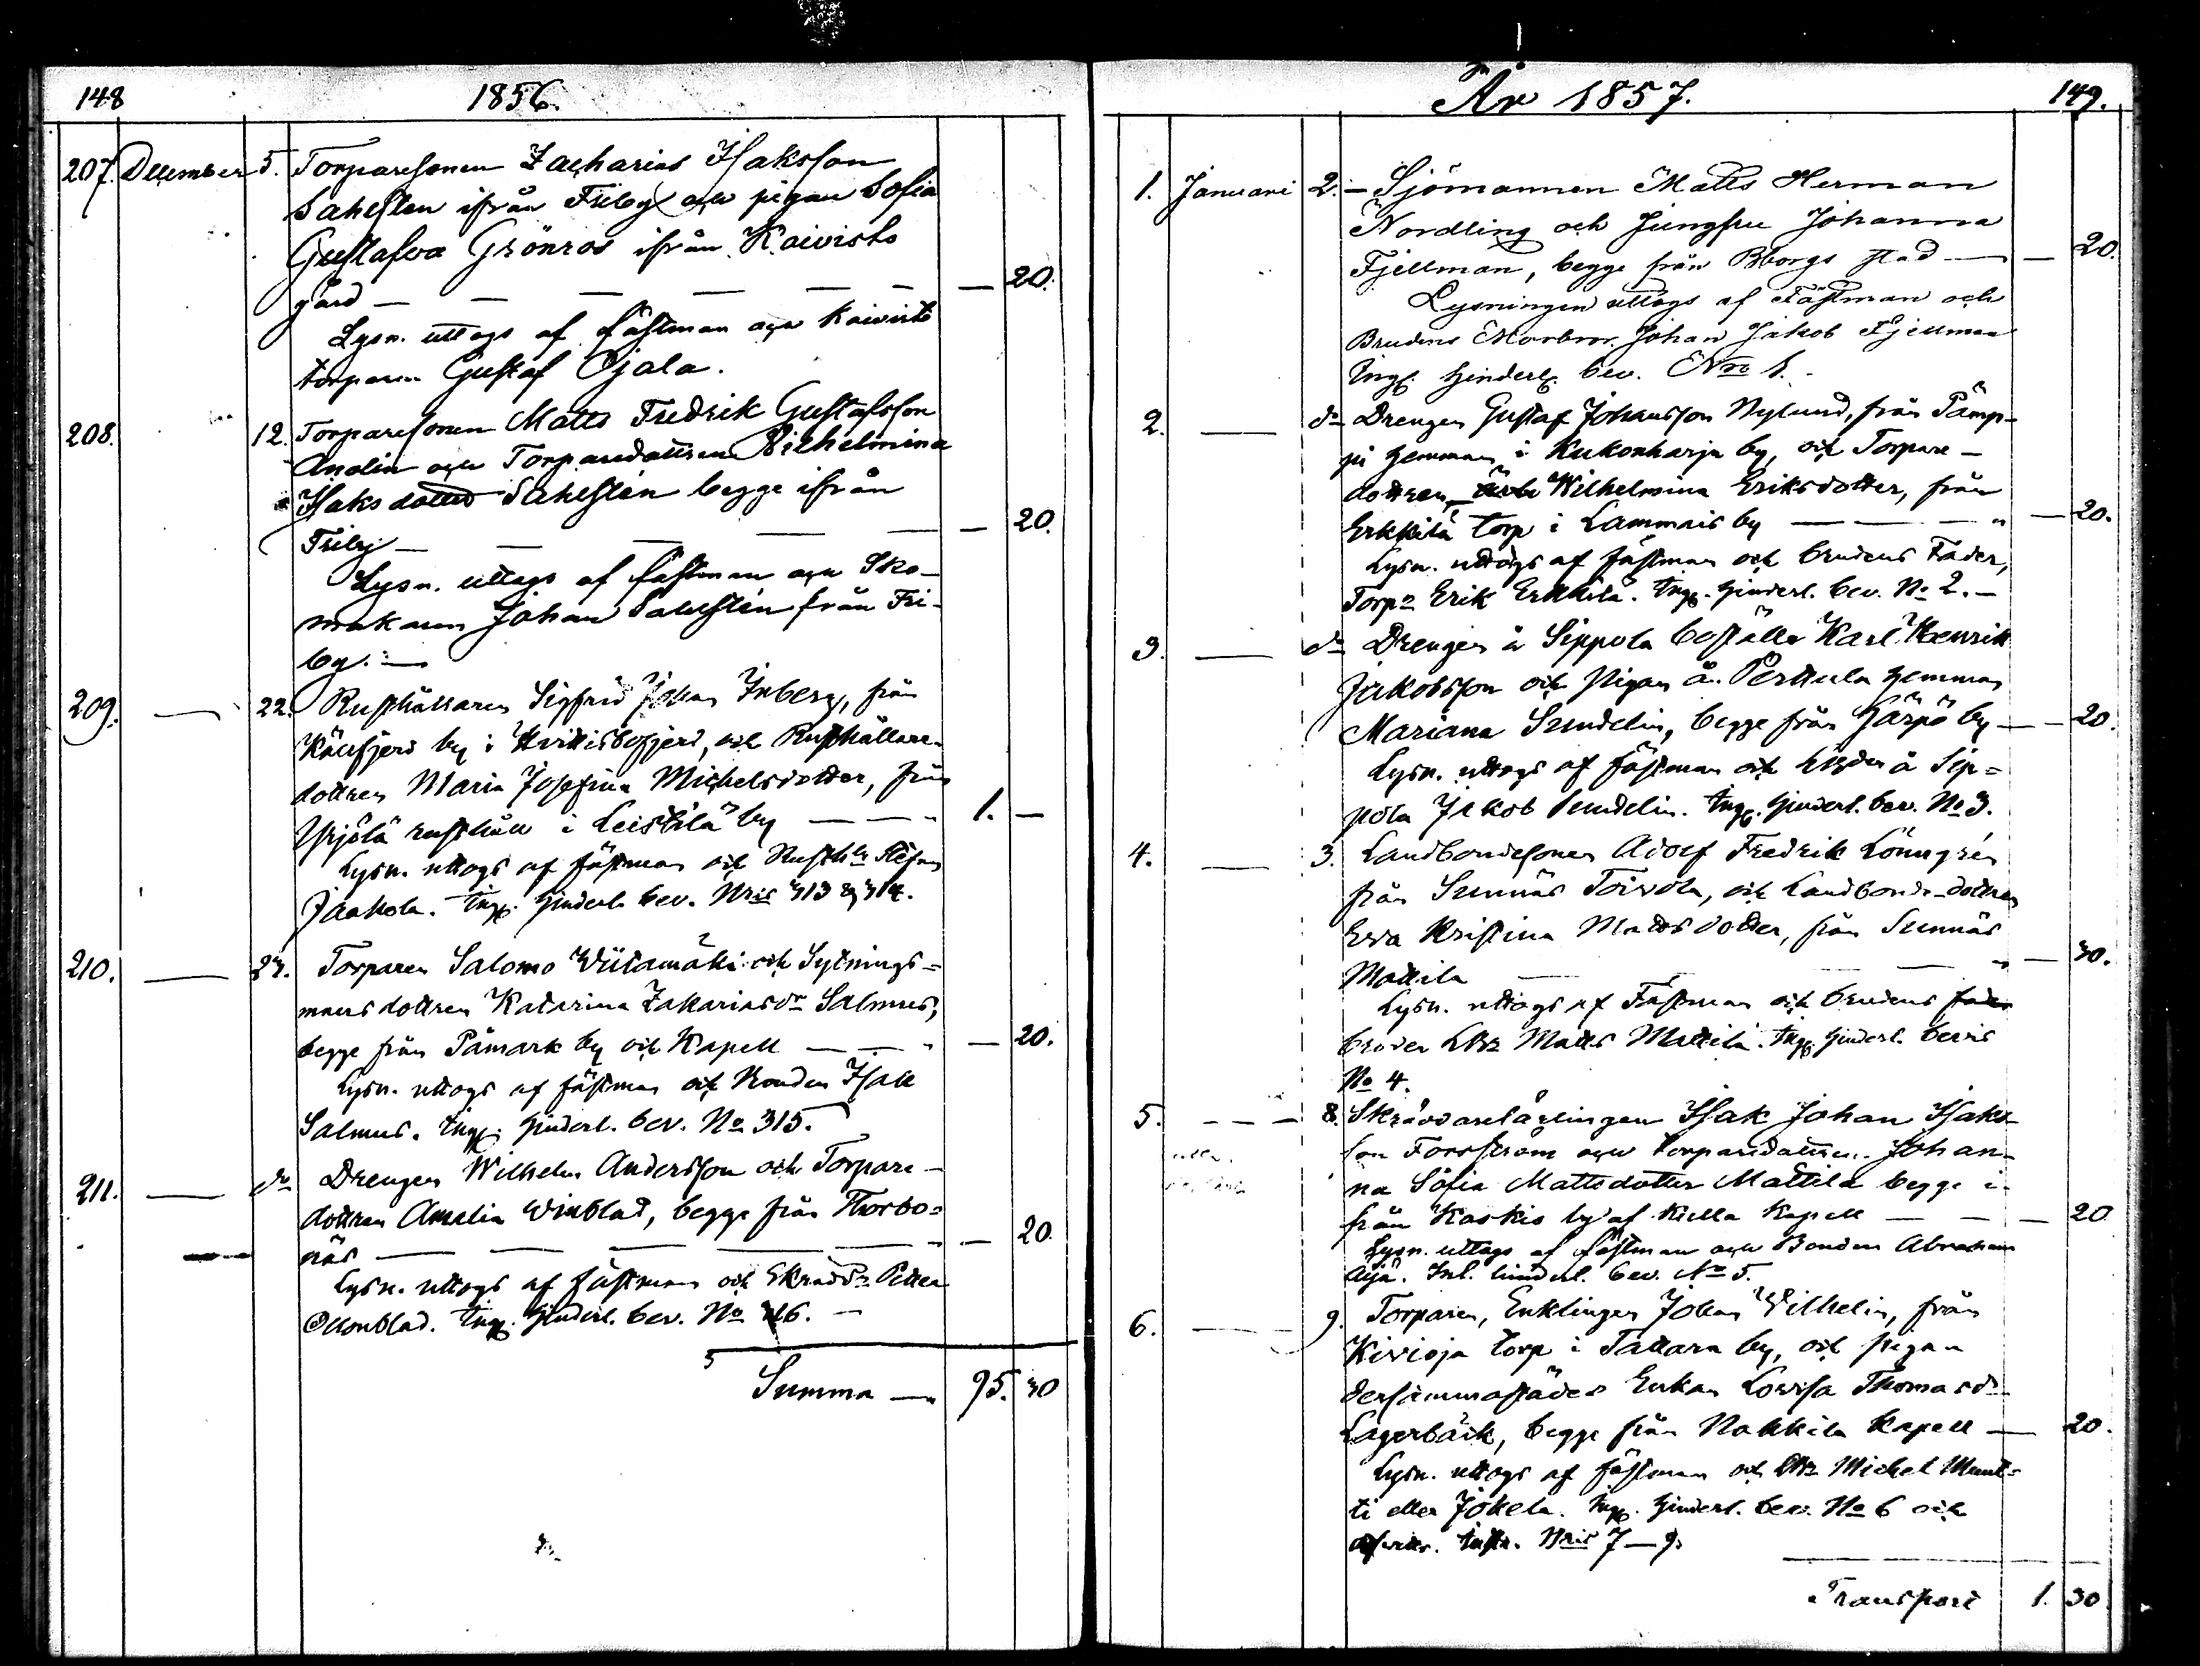 148 1856.
207. December 5. Torparesonen Zacharias Isaksson
Sahlsten ifrån Friby och pigan Sofia
Gustafva Grönros ifrån Kaivisto
gård — — — — — — 20.
Lysn. uttogs af fästman och Kaivisto
torparen Gustaf Ojala.
208. 12. Torparesonen Matts Fredrik Gustafsson
Andlin och Torparedottren Wilhelmina
Isaksdotter Sahlstén begge ifrån
Friby — — — — — — 20.
Lysn. uttogs af fästman och Sko-
makaren Johan Sahlstén från Fri-
by. —
209. — 22. Rusthållaren Sigfrid Johan Inberg, från
Käufjerd by i Hvittisbofjerd, och Rusthållare-
dottren Maria Josefina Michelsdotter, från
Yrjölä rusthåll i Leistilä by — — 1. —
Lysn. uttogs af fästman och Rusth. Stefan
Jaakola. Ingp. hinderl. bev. Nris 313 & 314.
210. — 27. Torparen Salomo Wiitamäki och Sytnings-
mans dottren Katarina Zakariasdr Salmus,
begge från Påmark by och Kapell — — — 20.
Lysn. uttogs af fästman och Bonden Isak
Salmus. Ingp. hinderl. bev. No 315.
211. — do Drengen Wilhelm Andersson och Torpare-
dottren Amalia Winblad, begge från Thorbo-
näs — — — — — — 20.
Lysn. uttogs af fästman och Skradd. Petter
Monblad. Ingp. hinderl. bev. No 316. —
Summa — 95. 30
År 1857. 149.
1. Januari 2. — Sjömannen Matts Herman
Nordling och Jungfru Johanna
Fjellman, begge från Bborgs stad — — 20.
Lysningen uttogs af Fästman och
Brudens Morbror Johan Jakob Fjellman
Ingp. hinderl. bev. Nro 1. -
2. — do Drengen Gustaf Johansson Nylund, från Pämp-
pi hemman i Kukonharja by, och Torpare-
dottren Wilhelmina Eriksdotter, från
Erkkilä torp i Lammais by — — — 20.
Lysn. uttogs af fästman och brudens Fader,
Torp. Erik Erkkilä. Ingp. hinderl. bev. No 2. —
3. — do Drengen å Sippola boställe Karl Henrik
Jakobsson och Pigan å Perttula hemman
Mariana Sundelin, begge från Härpö by — — 20.
Lysn. uttogs af fästman och å Sip-
pola Jakob Sundelin. Ingp. hinderl. bev. No 3.
4. — 3. Landbondesonen Adolf Fredrik Lönngrén
från Sunnäs Toivola, och Landbonde-dottren
Eva Kristina Mattsdotter, från Sunnäs
Mattila — — — 30.
Lysn. uttogs af Fästman och brudens fader
broder Matts Mattila. Ingp. hinderl. bevis
No 4.
5. - - - 8. Skräddarelärlingen Isak Johan Isaks-
son Forsström och torparedottren Johan-
na Sofia Mattsdotter Mattila begge i-
från Kaskis by af Kiella Kapell — — — 20
Lysn. uttogs af fästman och Bonden Abraham
Äijä. Inl. hinderl. bev. No 5.
6. — 9. Torparen, Enklingen Johan Wilhelm, från
Kivioja torp i Tattara by, och pigan
dersammastädes Enkan Lovisa Thomasd
Lagerbäck, begge från Nakkila Kapell — 20.
Lysn. uttogs af fästman och Michel Munt-
ti eller Jokela. Ingp. hinderl. bev. No 6 och
Nris 7—9.
Transport 1. 30